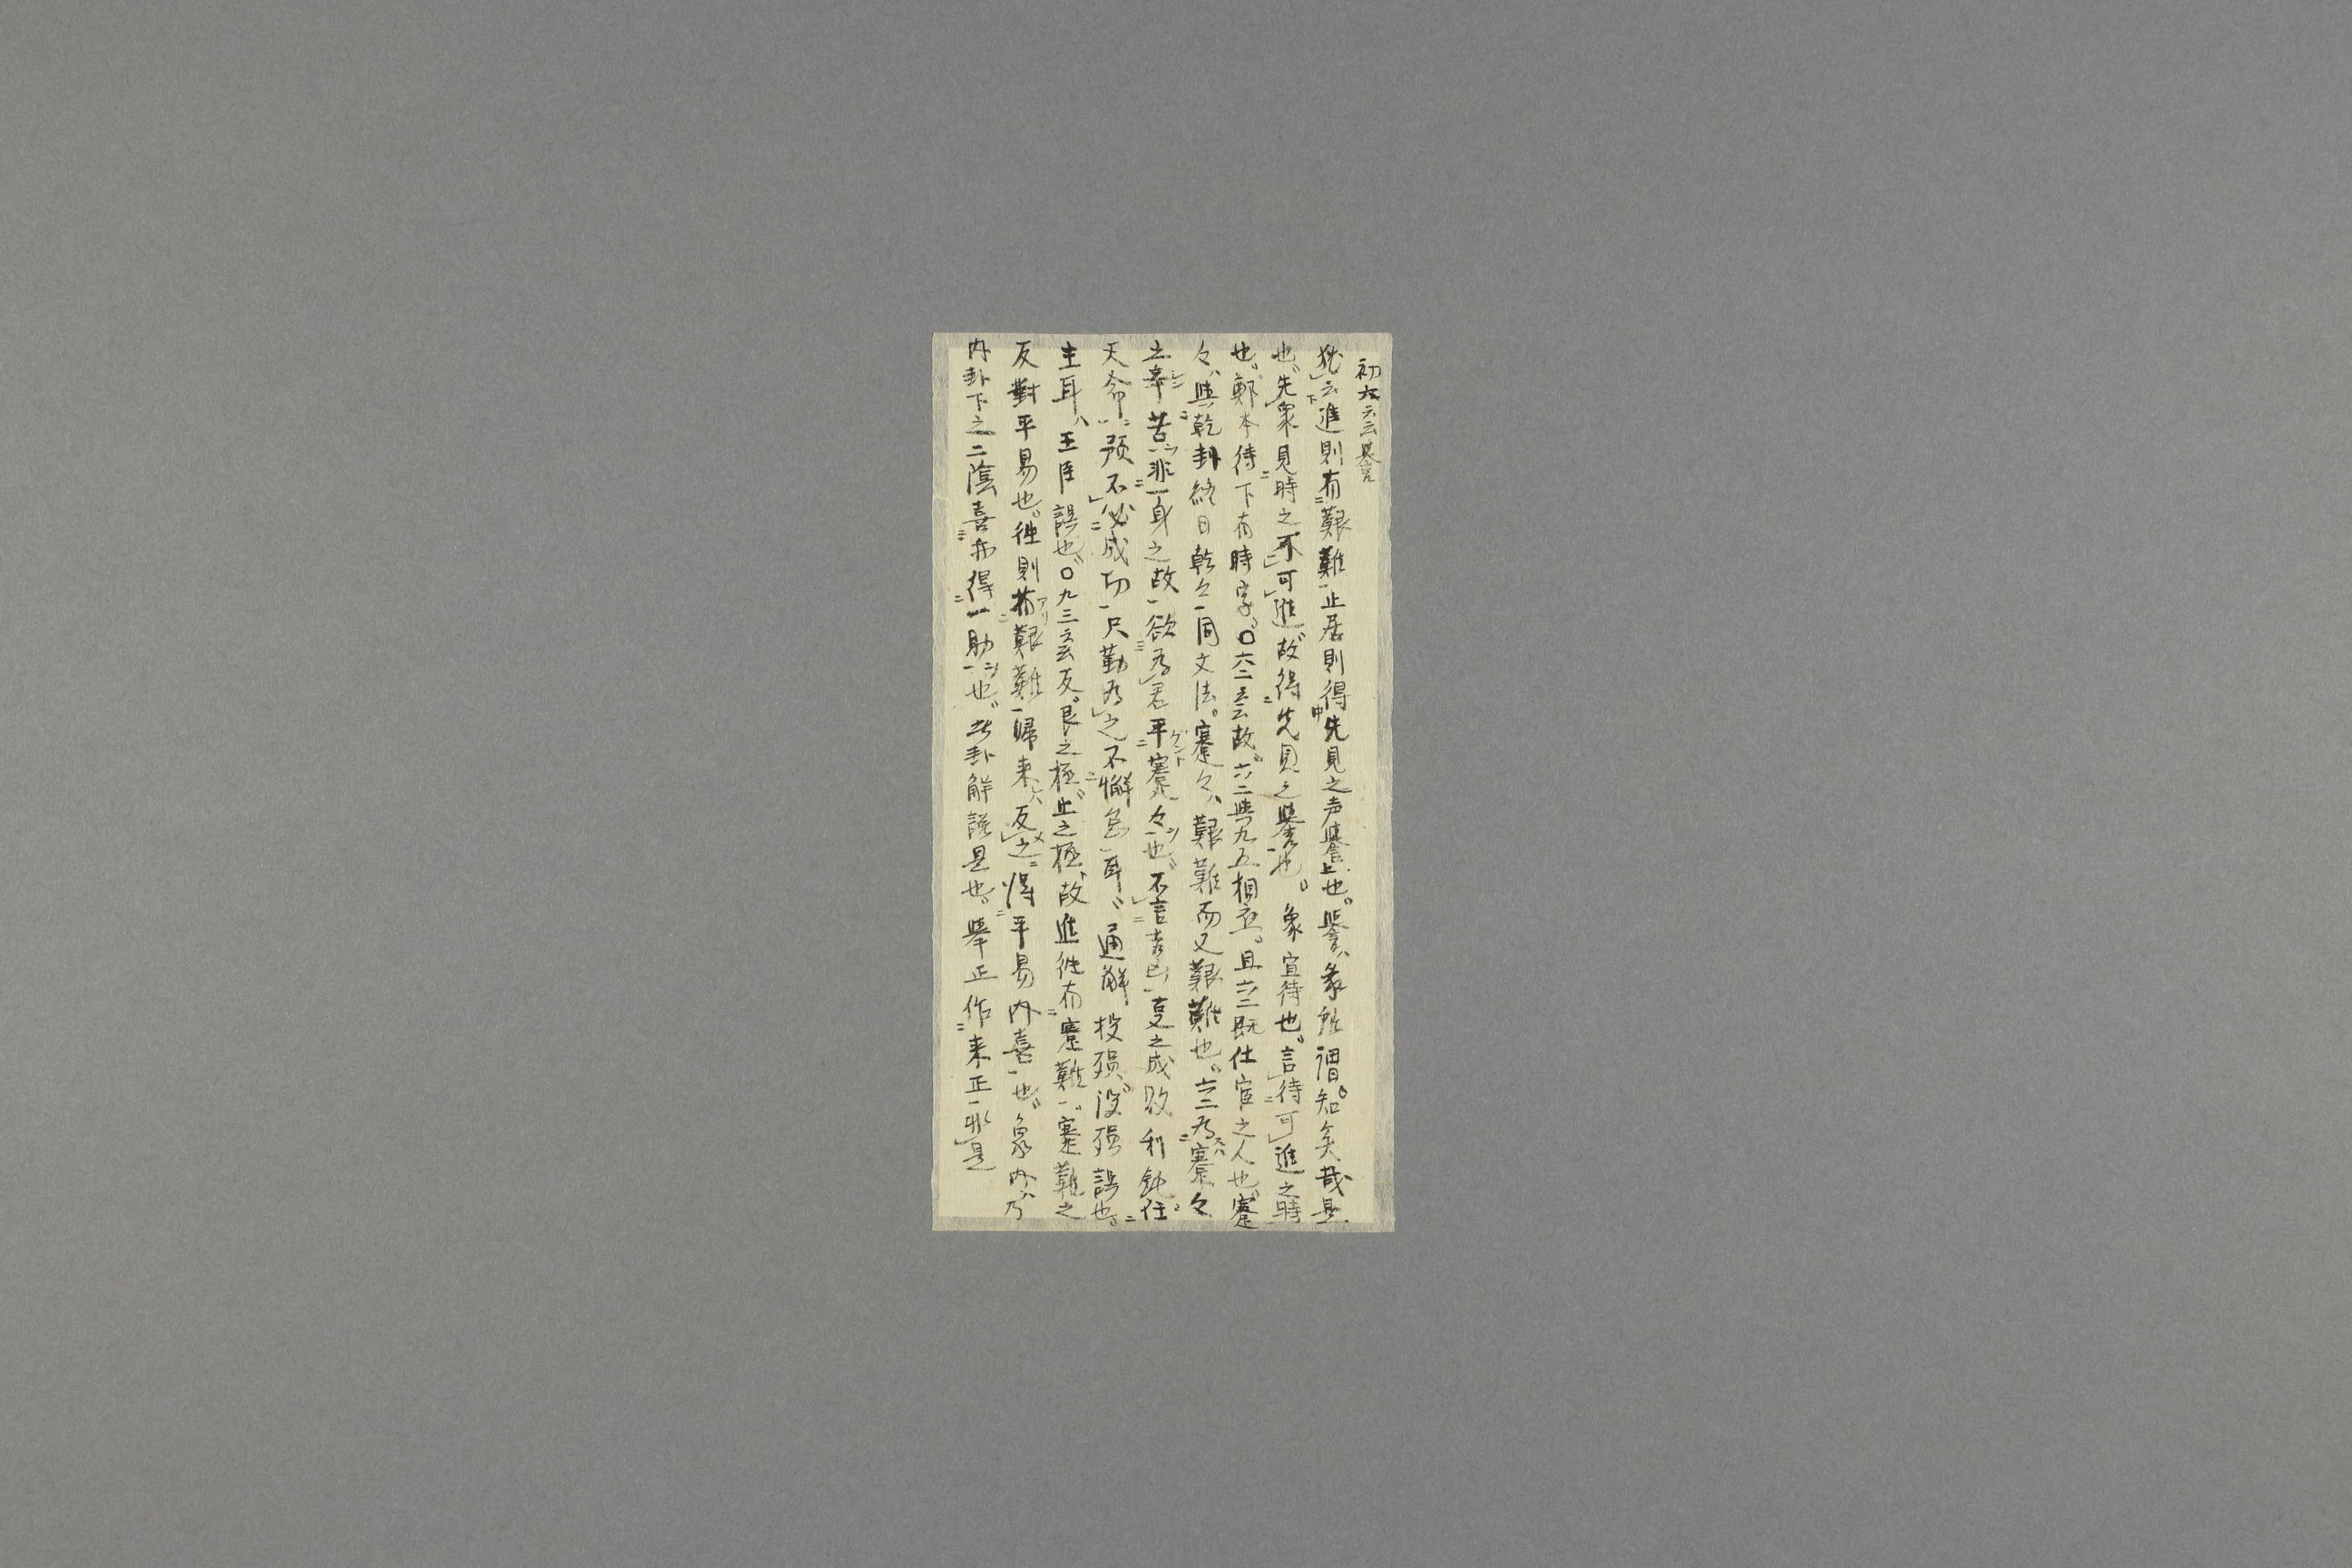 初六云云譽
猶云進則有艱難止居則得先見之声譽上也。譽、彖所謂知矣哉是
也。先衆見時之不可進故得先見之譽也。象宜待也。言待可進之時
也。鄭本待下有時字。○六二云云故。六二與九五相應。且六二既仕官之人也。蹇
々、與乾卦終日乾々同文法。蹇々、艱難而又艱難也。六二為蹇々
之辛苦、非一身之故、欲為君平蹇々也。不言吉凶、事之成敗利鈍任
天命、預不必成功、只勤為之不懈怠耳。通解投殞、没殞誤也。
主耳、王臣誤也。○九三云云反。艮之極、止之極、故進往有蹇難、蹇難之
反對平易也。往則有アリ艱難、歸来ハ反之、得平易内喜也。象内ハ乃
内卦下之二陰喜而得助也。此卦解説是也。舉正作来正非是